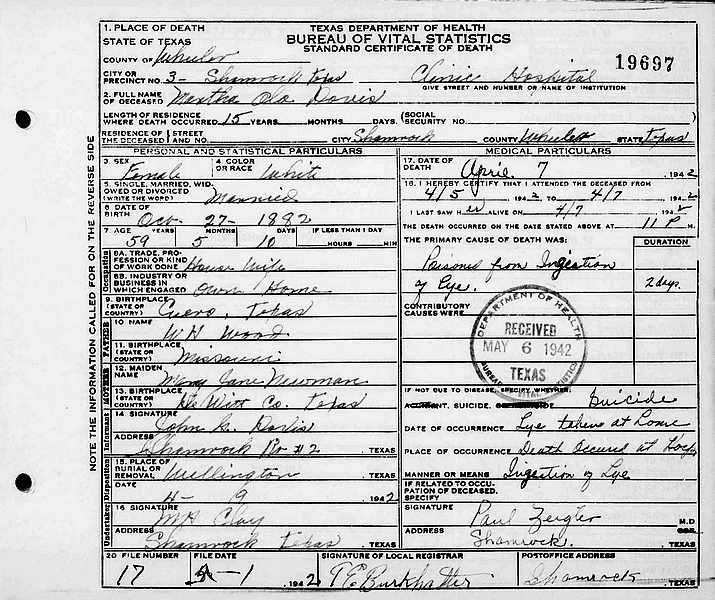 1. PLACE OF DEATH
TEXAS DEPARTMENT OF HEALTH
BUREAU OF VITAL STATISTICS
STANDARD CERTIFICATE OF DEATH
STATE OF TEXAS
COUNTY OF Wheeler
19697
CITY OR PRECINCT NO. 3- Shamrock, Texas Clinic Hospital
GIVE STREET AND NUMBER OR NAME OF INSTITUTION
2. FULL NAME OF DECEASED Martha Ola Davis
LENGTH OF RESIDENCE WHERE DEATH OCCURRED 15 YEARS MONTHS DAYS (SOCIAL SECURITY NO.
RESIDENCE OF THE DECEASED STREET AND NO. CITY Shamrock COUNTY Wheeler STATE Texas
PERSONAL AND STATISTICAL PARTICULARS
3. SEX Female
4 COLOR OR RACE White
5. SINGLE, MARRIED, WIDOWED OR DIVORCED (WRITE THE WORD) Married
6 DATE OF BIRTH Oct- 27- 1882
7 AGE YEARS MONTHS DAYS IF LESS THAN 1 DAY
59 5 10 HOURS MIN
Occupation
8A. TRADE, PROFESSION OR KIND OF WORK DONE House Wife
8B. INDUSTRY OR BUSINESS IN WHICH ENGAGED Own Home
9 BIRTHPLACE (STATE OR COUNTRY) Cuero, Texas
FATHER
10 NAME W H Wood
11. BIRTHPLACE (STATE OR COUNTRY) Missouri
MOTHER
12. MAIDEN NAME Mary Jane Newman
13. BIRTHPLACE (STATE OR COUNTRY) De Witt Co. Texas
Informant
14 SIGNATURE John G. Davis
ADDRESS Shamrock Rt #2 TEXAS
Disposition
15. PLACE OF BURIAL OR REMOVAL Wellington TEXAS
DATE 4- 9 1942
Undertaker
16 SIGNATURE M A Clay
ADDRESS Shamrock Texas TEXAS
MEDICAL PARTICULARS
17. DATE OF DEATH April 7 1942
18. I HEREBY CERTIFY THAT I ATTENDED THE DECEASED FROM
4/5 1942 TO 4/7 1942
I LAST SAW Her ALIVE ON 4/7 1942
THE DEATH OCCURRED ON THE DATE STATED ABOVE AT 11 P M.
THE PRIMARY CAUSE OF DEATH WAS:
DURATION
Poisons from Ingestion
of Lye. 2 days
CONTRIBUTORY CAUSES WERE:
DEPARTMENT OF HEALTH
RECEIVED
MAY 6 1942
TEXAS
BUREAU VITAL STATISTICS
IF NOT DUE TO DISEASE, SPECIFY WHETHER:
ACCIDENT, SUICIDE, Suicide
DATE OF OCCURRENCE Lye taken at Home
PLACE OF OCCURRENCE Death Occured at Hosp
MANNER OR MEANS Ingestion of Lye
IF RELATED TO OCCUPATION OF DECEASED, SPECIFY
SIGNATURE Paul Zeigler M.D.
ADDRESS Shamrock. TEXAS
20 FILE NUMBER 17
FILE DATE 5-1 1942
SIGNATURE OF LOCAL REGISTRAR T E Burkhalter
POSTOFFICE ADDRESS Shamrock TEXAS
NOTE THE INFORMATION CALLED FOR ON THE REVERSE SIDE